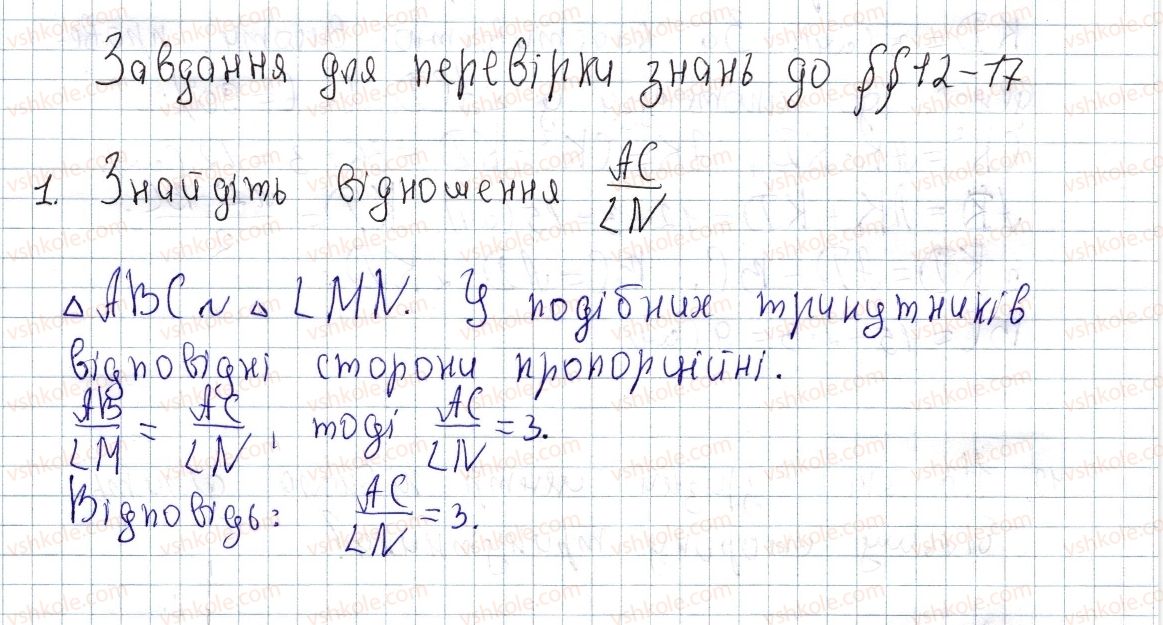 Завдання для перевірки знань до §§12-17
1. Знайдіть відношення AC/LN
△ABC ~ △LMN. У подібних трикутників
відповідні сторони пропорційні.
AB/LM = AC/LN, тоді AC/LN = 3.
Відповідь: AC/LN = 3.